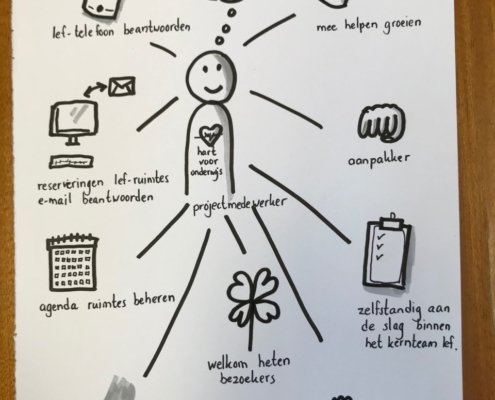 lef-telefoon beantwoorden
mee helpen groeien
hart
voor
onderwijs
aanpakker
reserveringen lef-ruimtes
e-mail beantwoorden
projectmedewerker
agenda ruimtes beheren
zelfstandig aan
de slag binnen
het kernteam lef.
welkom heten
bezoekers